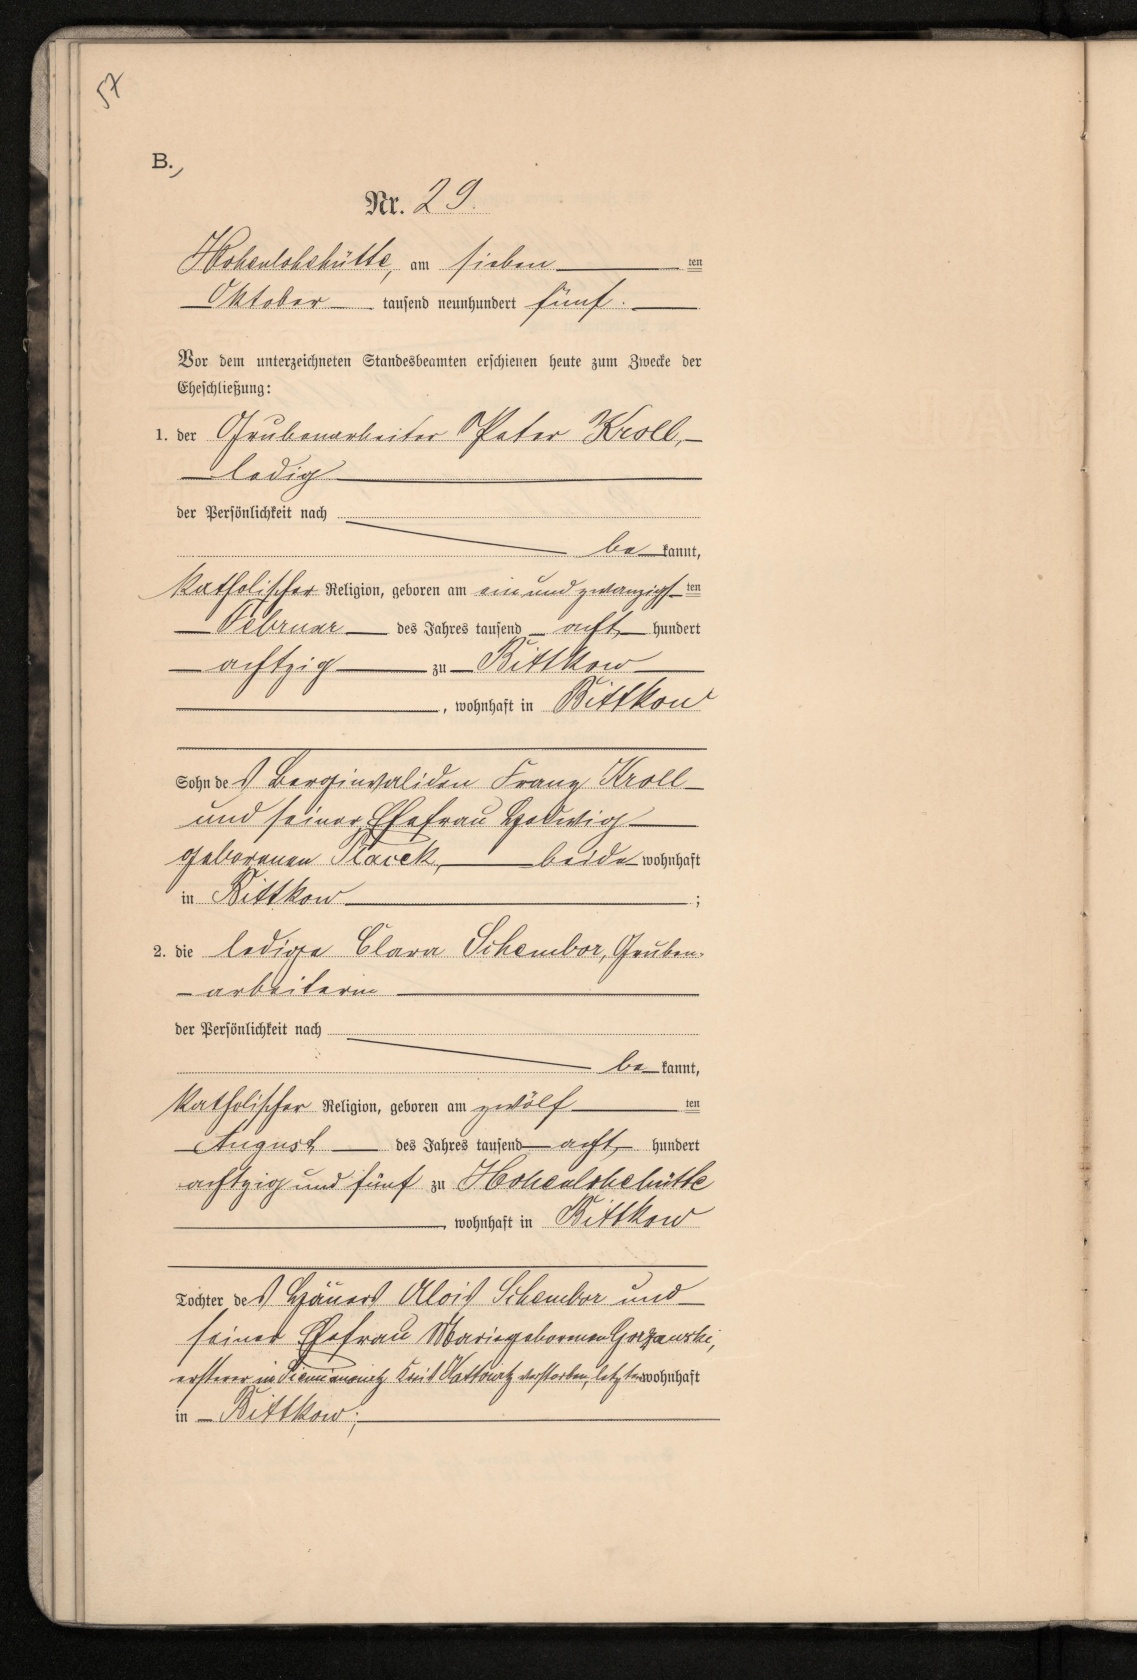 57
B.
Nr. 29.
Hohenlohehütte, am sieben ten
Oktober tausend neunhundert fünf.
Vor dem unterzeichneten Standesbeamten erschienen heute zum Zwecke der
Eheschließung:
1. der Grubenarbeiter Peter Kroll,
ledig
der Persönlichkeit nach
be kannt,
katholischer Religion, geboren am ein und zwanzigst ten
Februar des Jahres tausend acht hundert
achtzig zu Bittkow
, wohnhaft in Bittkow
Sohn des Berginvaliden Franz Kroll
und seiner Ehefrau Hedwig
geborenen beide wohnhaft
in Bittkow ;
2. die ledige Clara Schembor, Gruben-
arbeiterin
der Persönlichkeit nach
be kannt,
katholischer Religion, geboren am zwölf ten
August des Jahres tausend acht hundert
achtzig und fünf zu Hohenlohehütte
, wohnhaft in Bittkow
Tochter des Häuers Alois Schembor und
seiner Ehefrau Marie geborenen
ersterer in Siemianowitz Kreis Kattowitz verstorben, letztere wohnhaft
in Bittkow;